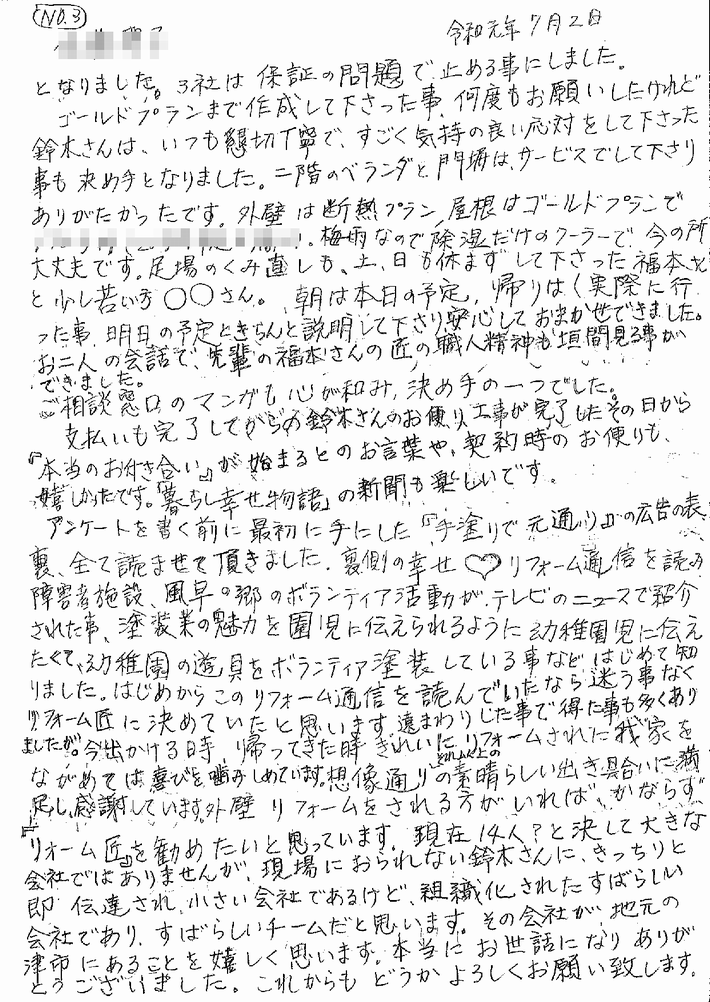 NO.3
令和元年7月2日
となりました。3社は保証の問題で止める事にしました。
ゴールドプランまで作成して下さった事、何度もお願いしたけれど
鈴木さんは、いつも懇切丁寧で、すごく気持の良い応対をして下さった
事も決め手となりました。二階のベランダと門塀は、サービスでして下さり
ありがたかったです。外壁は断熱プラン、屋根はゴールドプランで
梅雨なので除湿だけのクーラーで、今の所
大丈夫です。足場のくみ直しも、土、日も休まずして下さった福本さん
と少し若い方〇〇さん。朝は本日の予定、帰りは(実際に行
った事、明日の予定ときちんと説明して下さり安心しておまかせできました。
お二人の会話で、先輩の福本さんの匠の職人精神も垣間見る事が
できました。
ご相談窓口のマンガも心が和み、決め手の一つでした。
支払いも完了してからの鈴木さんのお便り、工事が完了したその日から
『本当のお付き合い』が始まるとのお言葉や、契約時のお便りも、
嬉しかったです。「暮らし幸せ物語」の新聞も楽しいです。
アンケートを書く前に最初に手にした『手塗りで元通り』の広告の表
裏、全て読ませて頂きました。裏側の幸せ♡リフォーム通信を読み
障害者施設、風早の郷のボランティア活動が、テレビのニュースで紹介
された事、塗装業の魅力を園児に伝えられるように幼稚園児に伝え
たくて、幼稚園の遊具をボランティア塗装している事など、はじめて知
りました。はじめからこのリフォーム通信を読んでいたなら迷う事なく
リフォーム匠に決めていたと思います。遠まわりした事で得た事も多くあり
ましたが。今出かける時、帰ってきた時きれいにリフォームされた我家を
ながめては喜びを噛みしめています。想像通りのそれ以上の素晴らしい出き具合いに満
足し感謝しています。外壁リフォームをされる方がいれば、かならず
『リフォーム匠』を勧めたいと思っています。現在14人?と決して大きな
会社ではありませんが、現場におられない鈴木さんに、きっちりと
即伝達され、小さい会社であるけど、組織化されたすばらしい
会社であり、すばらしいチームだと思います。その会社が地元の
津市にあることを嬉しく思います。本当にお世話になりありが
とうございました。これからもどうかよろしくお願い致します。